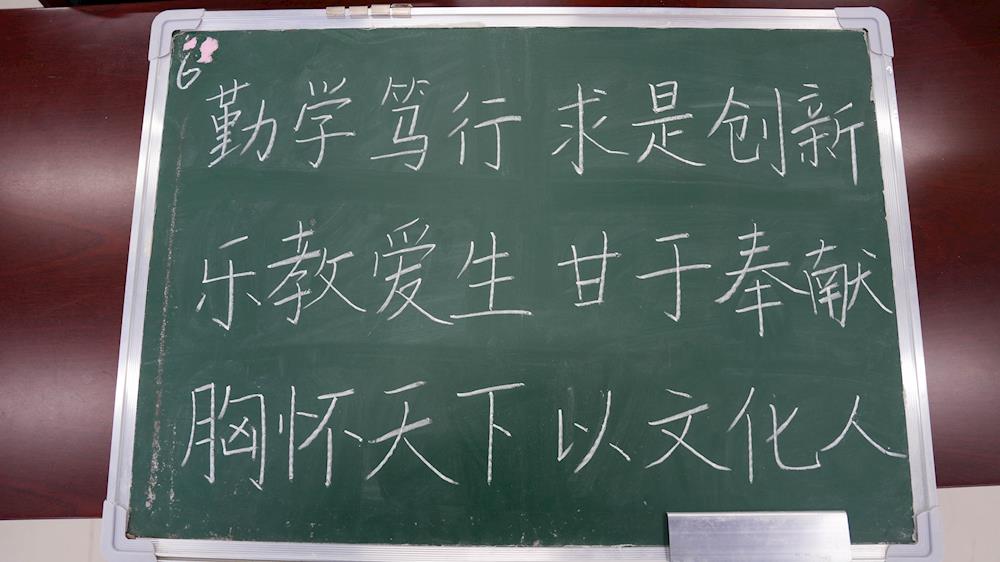 6
勤学笃行 求是创新
乐教爱生 甘于奉献
胸怀天下 以文化人